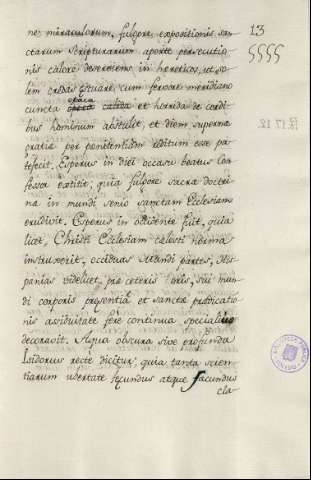 13
ne miraculorum, fulgore expositionis san-
ctarum Scripturarum aperte persecutio-
nis calore deseviens in hereticos, ut so-
lem credas estuare, cum fervore meridiano
opaca
cuncta et horrida de cordi-
bus hominum abstulit, et diem superna
gratia per penitentiam reditum esse pa-
tefecit. Esperus in diei occasu beatus Con-
fessor extitit; quia fulgore sacra doctri-
na in mundi senio sanctam Ecclesiam
erudivit. Esperus in occidente fuit, quia
licet, Christi Ecclesiam celesti norma
instruxerit, occiduas tamen partes, His-
panias videlicet, præ ceteris horis, sui mun-
di corporis presentia et sancta prædicatio-
nis assiduitate fere continua specialius
decoravit. Aqua obscura sive profunda
Isidorus recte dicitur; quia tanta scien-
tiarum ubertate fecundus atque facundus
cla-